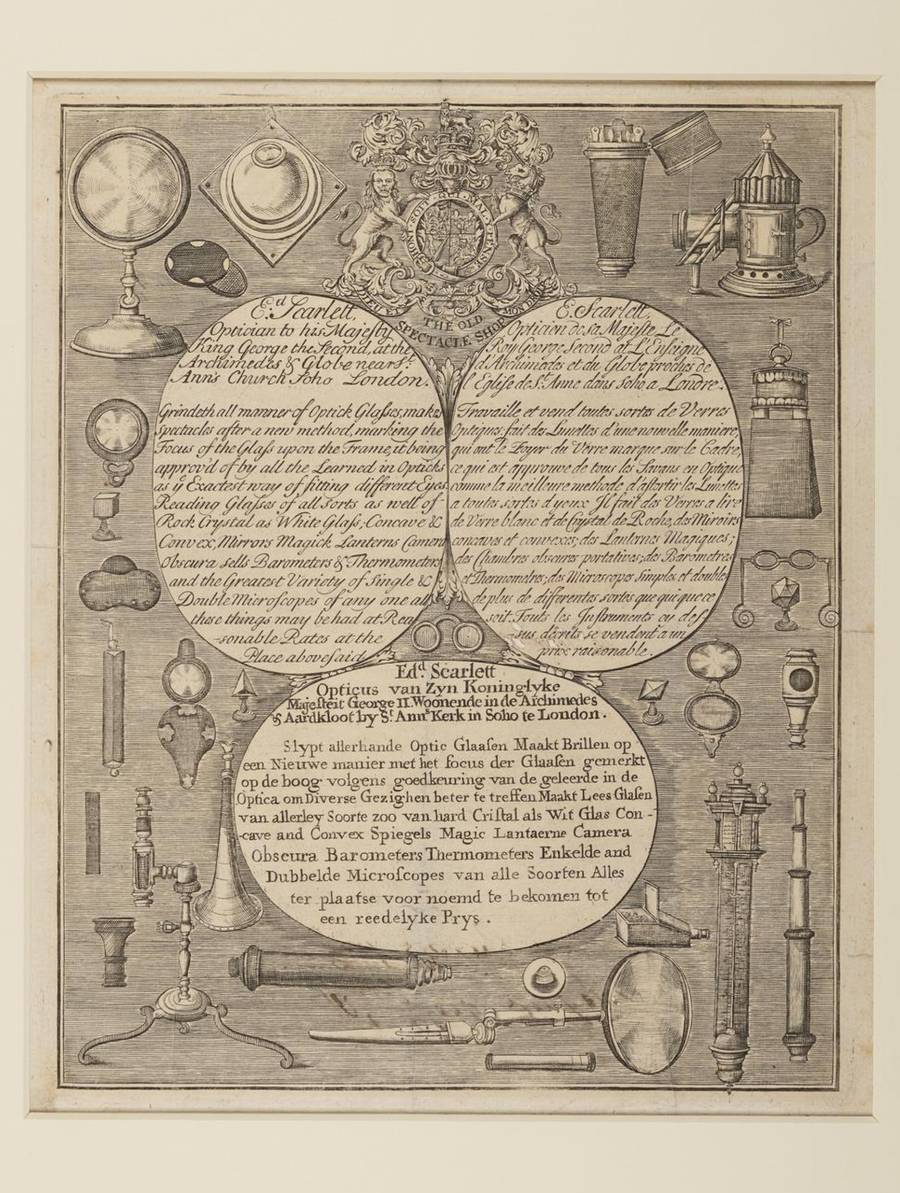 HONI SOIT QUI MAL Y PENSE
DIEU ET
MON DROIT
THE OLD
SPECTACLE SHOP
Ed Scarlett,
Optician to his Majesty
King George the Second, at the
Archimedes & Globe near St.
Ann's Church Soho London.
Grindeth all manner of Optick Glaſses, makes
Spectacles after a new method, marking the
Focus of the Glaſs upon the Frame, it being
approv'd of by all the Learned in Opticks
as yͤ Exactest way of fitting different Eyes
Reading Glaſses of all Sorts as well of
Rock Crystal as White Glaſs, Concave &
Convex, Mirrors Magick Lanterns Camera
Obscura sells Barometers & Thermometers
and the Greatest Variety of Single &
Double Microſcopes of any one all
those things may be had at Rea
-sonable Rates at the
Place aboveſaid
E. Scarlett,
Opticien de sa Majeste Le
Roy George Second at L'Enseigne
d'Archimedes et du Globe proches de
l'Eglise de St. Anne dans Soho a Londre.
Travaille et vend toutes sortes de Verres
Optiques, fait des Lunettes d'une nouvelle maniere,
qui ont le Foyer du Verre marque sur le Cadre,
ce qui est approuve de tous les Savans en Optique
comme la meilleure methode d'assortir les Lunettes
a toutes sortes d'yeux Il fait des Verres a lire
de Verre blanc et de Crystal de Roche, des Miroirs
concaves et convexes; des Lanternes Magiques;
des Chambres obscures portatives; des Barometres
et Thermometres; des Microscopes Simples et double
de plus de differentes sortes que qui que ce
soit. Touts les Instruments cy des
sus decrits se vendent a un
prix raisonable.
Edd Scarlett
Opticus van Zyn Koninglyke
Majeſteit George II. Woonende in de Archimedes
& Aardkloot by St. Anns Kerk in Soho te London.
Slypt allerhande Optic Glaaſen Maakt Brillen op
een Nieuwe manier met het focus der Glaaſen gemerkt
op de boog volgens goedkeuring van de geleerde in de
Optica om Diverse Gezighen beter te treffen Maakt Lees Glaſen
van allerley Soorte zoo van hard Criſtal als Wit Glas Con-
-cave and Convex Spiegels Magic Lantaerne Camera
Obscura Barometers Thermometers Enkelde and
Dubbelde Microſcopes van alle Soorten Alles
ter plaatse voor noemd te bekomen tot
een reedelyke Prys.